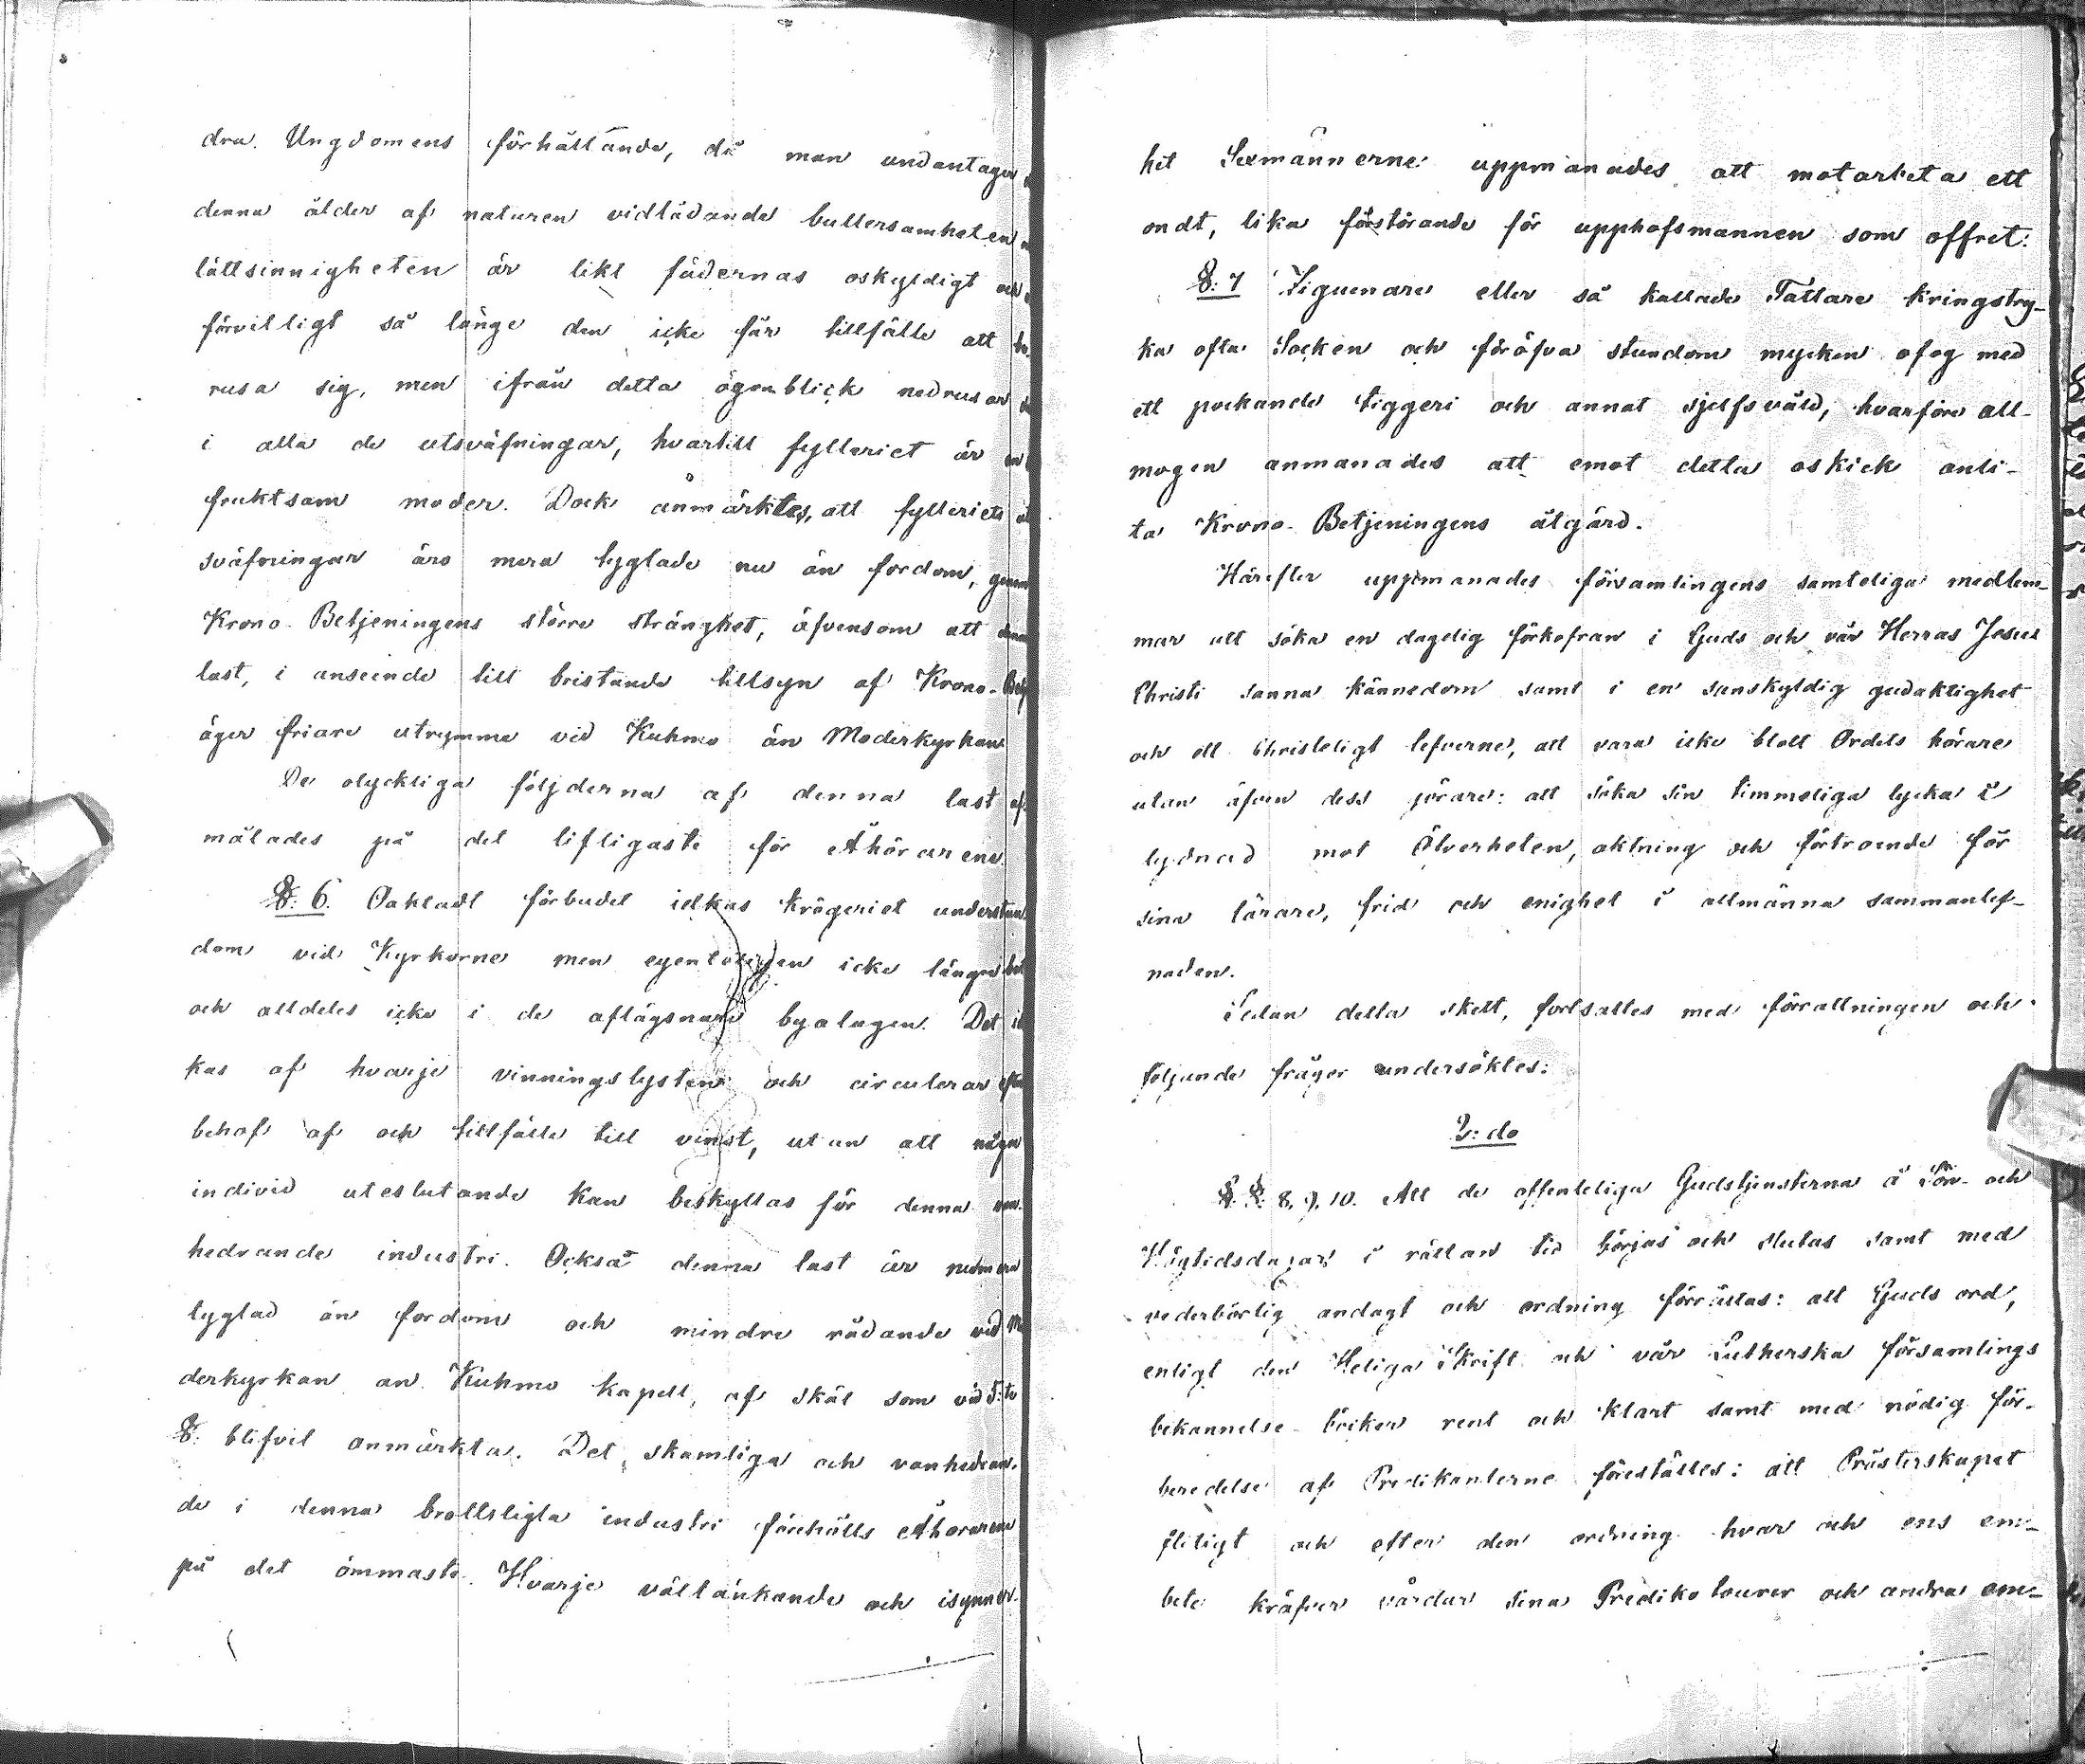 dra. Ungdomens förhållande, då man undantager
denna ålder af naturen vidlådande bullersamheten
lättsinnigheten är likt fädernas oskyldigt och
förvilligt så länge den icke får tillfälle att be-
rusa sig, men ifrån detta ögonblick nedrusar
i alla de utsväfningar, hvartill fylleriet är en
fruktsam moder. Dock anmärktes, att fylleriets ut
sväfningar äro mera tyglade nu än fordom, genom
Krono-Betjeningens större stränghet, äfvensom att denna
last, i anseende till bristande tillsyn af Krono-Betj
äger friare utrymme vid Kuhmo än Moderkyrkan
De olyckliga följderna af denna last af-
målades på det lifligaste för Åhörarene
§: 6. Oaktadt förbudet idkas krögeriet understun
dom vid Kyrkorne men egenteligen icke längre
och alldeles icke i de aflägsnare byalagen. Det id
kas af hvarje vinningslysten och circulerar efter
behof af och tillfälle till vinst, utan att någon
individ uteslutande kan beskyllas för denna van-
hedrande industri. Också denna last är mera
tyglad än fordom och mindre rådande vid Mo
derkyrkan än Kuhmo kapell, af skäl som vid 5:te
§: blifvit anmärkta. Det skamliga och vanhedran-
de i denna brottsligta industri förehålls Åhörarena
på det ömmaste. Hvarje vältänkande och isynner-
het Sexmännerne uppmanades att motarbeta ett
ondt, lika förstörande för upphofsmannen som offret:
§: 7 Ziguenare eller så kallade Tattare kringstry-
ka ofta Socken och föröfva stundom mycken ofog med
ett pockande tiggeri och annat sjelfsvåld, hvarföre all-
mogen anmanades att emot detta oskick anli-
ta Krono-Betjeningens åtgärd.
Härefter uppmanades församlingens samteliga medlem-
mar att söka en dagelig förkofran i Guds och vår Herras Jesus
Christi sanna kännedom samt i en sanskyldig gudaktighet
och ett Christeligt lefverne, att vara icke blott Ordets hörare
utan äfven dess görare: att söka sin timmeliga lycka i
lydnad mot Öfverheten, aktning och förtroende för
sina lärare, frid och enighet i allmänna sammanlef-
naden.
Sedan detta skett, fortsattes med förrättningen och
följande frågor undersöktes:
2:do
§. §. 8, 9, 10. Att de offenteliga Gudstjensterna å Sön- och
Högtidsdagar i rättan tid börjas och slutas samt med
vederbörlig andagt och ordning förrättas: att Guds ord,
enligt den Heliga Skrift och vår Lutherska församlings
bekännelse böcker rent och klart samt med nödig för-
beredelse af Predikanterne föreställes: att Prästerskapet
flitigt och efter den ordning hvar och ens em-
bete kräfver vårdar sina Prediko tourer och andra em-